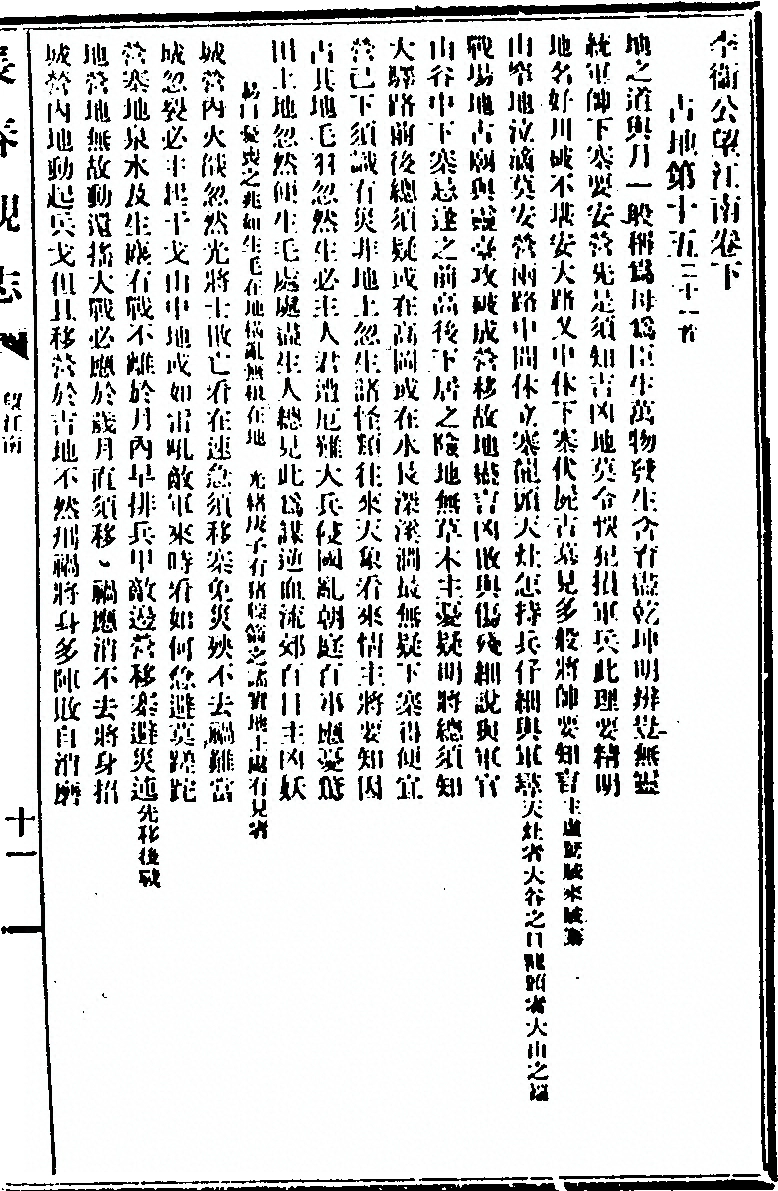 李衞公望江南卷下
占地第十五二十一首
地之道與月一般稱爲母爲臣生萬物發生含育滋乾坤明辨是無靈
統軍帥下寨要安營先是須知吉凶地莫令悞犯損軍兵此理要精明
地名好川破不堪安大路叉中休下寨伏屍古墓見多般將帥要知官主虛驚賊來賊
山窄地泣滴莫安營兩路中間休立寨龍頭天灶怎持兵仔細與軍 天灶者大谷之口龍頭者大山之端
戰場地古廟與靈臺攻破成營移故地 言凶敗與傷殘細說與軍官
山谷中下寨忌逢之前高後下居之險地無草木主憂疑明將總須知
大驛路前後總須疑或在高岡或在水長深溪澗最無疑下寨得便宜
營已下須識有災非地上忽生諸怪類往來天象看來情主將要知因
占其地毛羽忽然生必主人君遭厄難大兵侵國亂朝庭百事應憂驚
田土地忽然便生毛處處盡生人總見此爲謀逆血流郊百日主凶妖
易曰憂喪之兆如生毛在地橫亂無根在地 光緒庚子有豬 之謠實地上處有見者
城營內火餤忽然光將士敗亡看在速急須移寨免災殃不去禍難當
城忽裂必主起干戈山中地或如雷吼敵軍來時看如何急避莫蹉跎
營寨地泉水及生 有戰不離於月內早排兵甲敵邊營移寨避災迍先移後戰
地營地無故動還搖大戰必應於歲月直須移 禍應消不去將身招
城營內地動起兵戈但且移營於吉地不然 禍將身多陣敗自消磨
長春觀志
望江南
十一